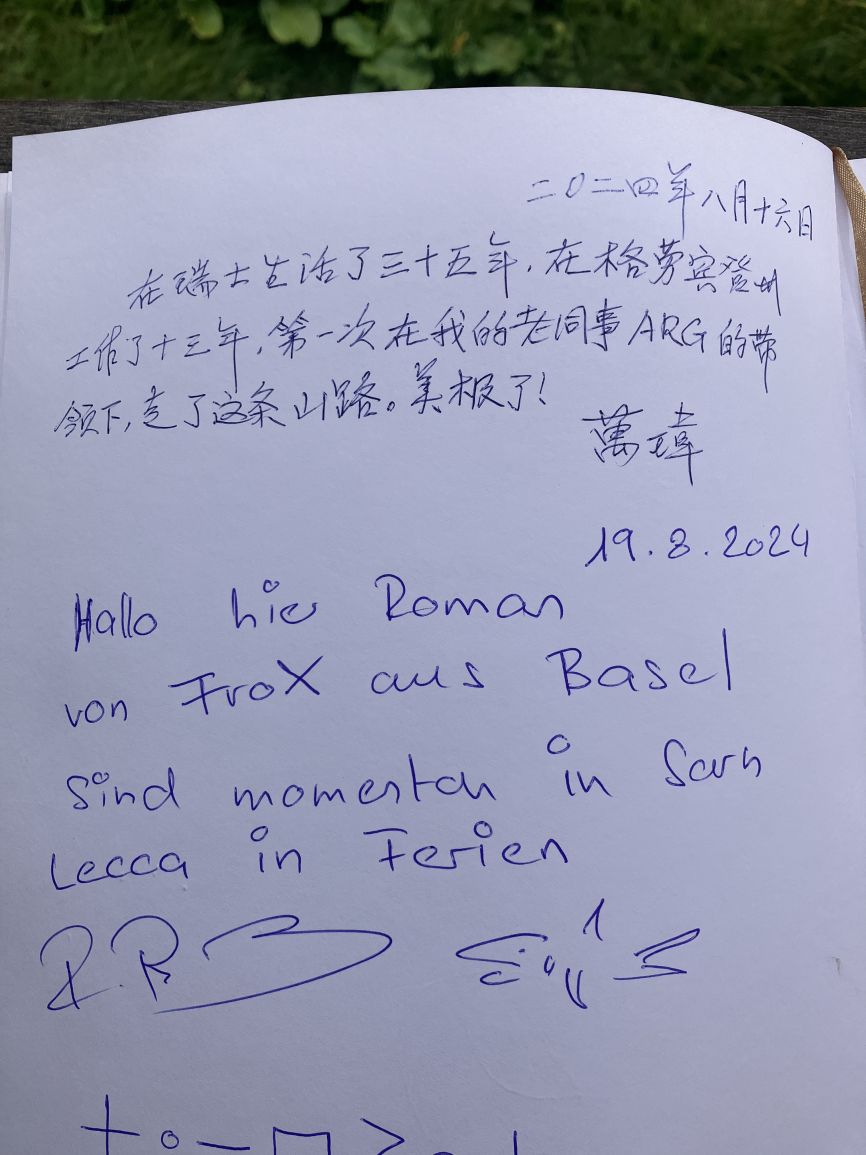 二〇二四年八月十六日
在瑞士生活了三十五年，在格劳宾登州
工作了十三年，第一次在我的老同事ARG的带
领下，走了这条山路。美极了！
萬瑋
19.8.2024
Hallo hier Roman
von FroX aus Basel
Sind momentan in Sarn
Lecca in Ferien